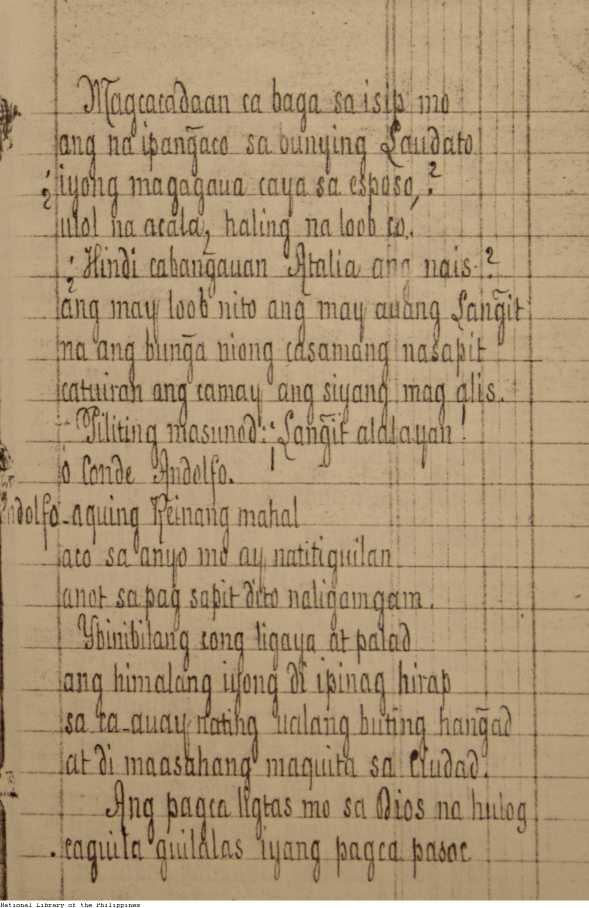 Magcacadaan ca baga sa isip mo
ang na ipang̃aco sa bunying Laudato
¿iyong magagaua caya sa esposo,?
ulol na acala, haling na loob co.
¿Hindi cabang̃auan Atalia ang nais?
ang may loob nito ang may auang Lang̃it
na ang bung̃a niong casamang nasapit
catuiran ang camay ang siyang mag alis.
Piliting masunod: ¡Lang̃it alalayan!
ó Conde Andolfo.
Andolfo - aquing Reinang mahal
aco sa anyo mo ay natitiguilan
anot sa pag sapit dito naligamgam.
Ybinibilang cong ligaya at palad
ang himalang iyong di ipinag hirap
sa ta-auay nating ualang buting hang̃ad
at di maasahang maquita sa Ciudad.
Ang pagca ligtas mo sa Dios na hulog
caguila guilalas iyang pagca pasoc
National Library of the Philippines